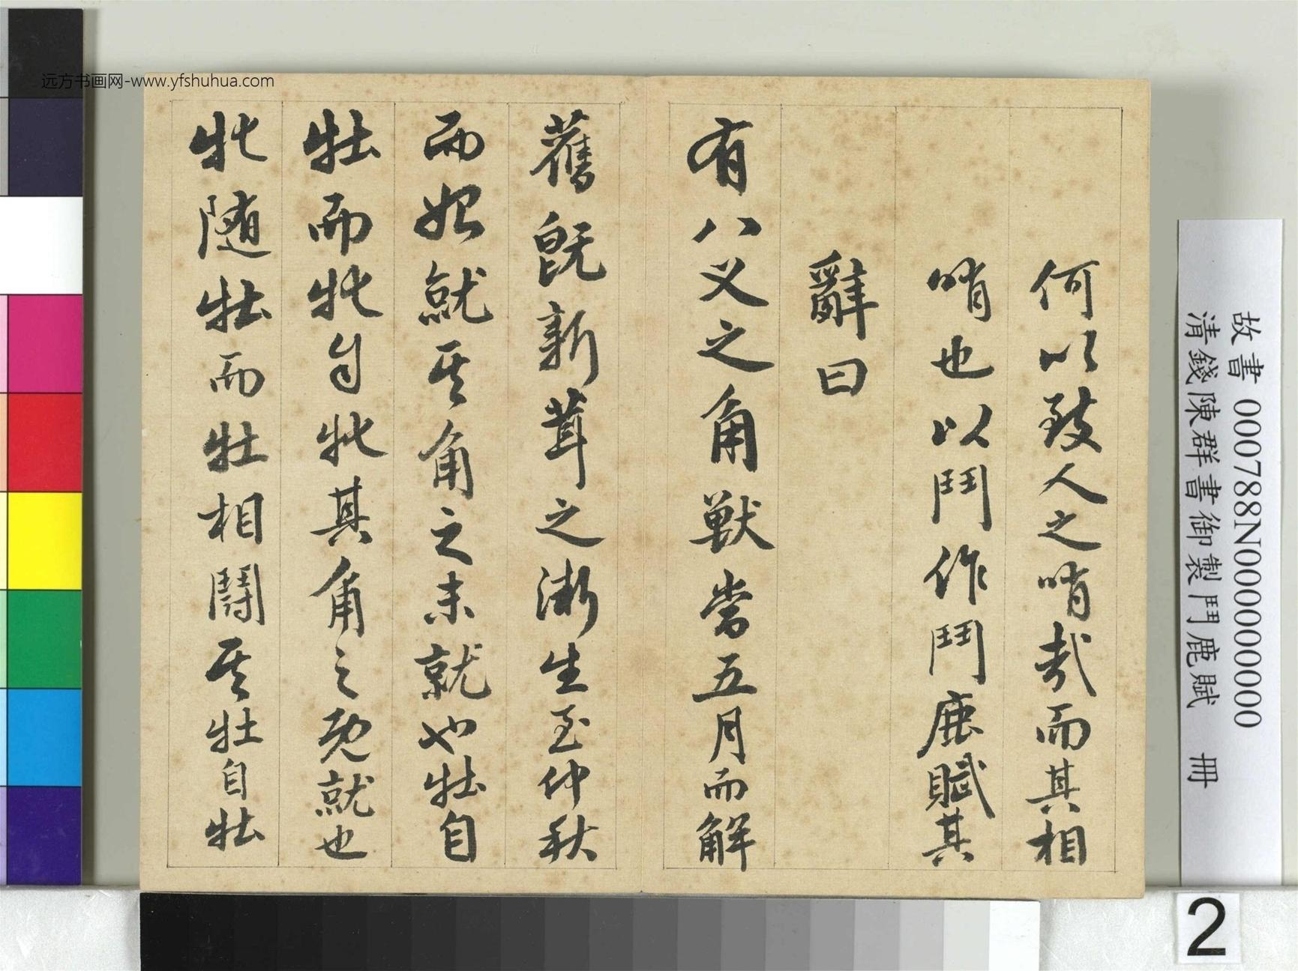 何以致人之哨哉而其相
哨也以鬥作鬥鹿賦其
辭曰
有八义之角獸當五月而解
舊旣新茸之漸生至仲秋
而始就其角之未就也牡自
牡而牝自牝其角之既就也
牝随牡而牡相鬪其牡自牡
故書 000788N000000000
清錢陳群書御製鬥鹿賦 冊
2
远方书画网-www.yfshuhua.com